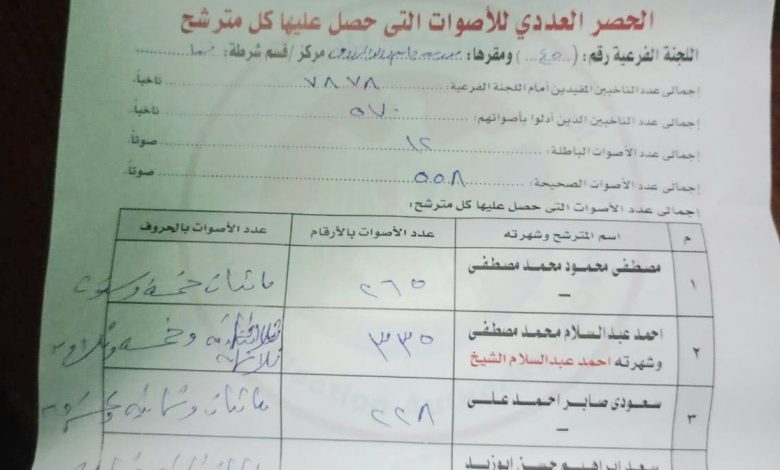 الحصر العددي للأصوات التى حصل عليها كل مترشح
اللجنة الفرعية رقم: (٤٥) ومقرها: مدرسة مركز/قسم شرطة:
إجمالى عدد الناخبين المقيدين أمام اللجنة الفرعية: ٧٨٧٨ ناخباً.
إجمالى عدد الناخبين الذين أدلوا بأصواتهم: ٥٧٠ ناخباً.
إجمالى عدد الأصوات الباطلة: ١٢ صوتاً.
إجمالى عدد الأصوات الصحيحة: ٥٥٨ صوتاً.
إجمالى عدد الأصوات التى حصل عليها كل مترشح:
م اسم المترشح وشهرته عدد الأصوات بالأرقام عدد الأصوات بالحروف
١ مصطفى محمود محمد مصطفى – ٢٦٥ مائتان خمسة وستون
٢ احمد عبدالسلام محمد مصطفى ٣٣٥ ثلاثمائة وخمسة وثلاثون
وشهرته احمد عبدالسلام الشيخ
٣ سعودى صابر احمد على – ٢٢٨ مائتان وثمانية وعشرون
سعد ابراهيم حسن ابوزيد